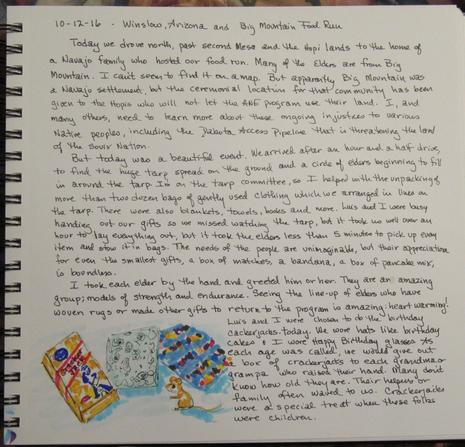 10-12-16 - Winslow, Arizona and Big Mountain Food Run
Today we drove north, past second Mesa and the Hopi lands to the home of
a Navajo family who hosted our food run. Many of the Elders are from Big
Mountain. I can't seem to find it on a map. But apparently Big Mountain was
a Navajo settlement, but the ceremonial location for that community has been
given to the Hopis who will not let the ANE program use their land. I, and
many others, need to learn more about these ongoing injustices to various
Native peoples, including the Dakota Access Pipeline that is threatening the land
of the Souix Nation.
But today was a beautiful event. We arrived after an hour and a half drive,
to find the huge tarp spread on the ground and a circle of elders beginning to fill
in around the tarp. I'm on the tarp committee, so I helped with the unpacking of
more than two dozen bags of gently used clothing which we arranged in lines on
the tarp. There were also blankets, towels, books and more. Luis and I were busy
handing out our gifts so we missed watching the tarp, but it took us well over an
hour to lay everything out, but it took the elders less than 5 minutes to pick up every
item and stow it in bags. The needs of the people are unimaginable, but their appreciation
for even the smallest gifts, a box of matches, a bandana, a box of pancake mix,
is boundless.
I took each elder by the hand and greeted him or her. They are an amazing
group; models of strength and endurance. Seeing the line-up of elders who have
woven rugs or made other gifts to return to the program is amazing; heart warming!
Luis and I were chosen to do the birthday
crackerjacks today. We wore hats like birthday
cakes & I wore Happy Birthday glasses. As
each age was called, we would give out
a box of crackerjacks to each grandma or
grampa who raised their hand. Many don't
know how old they are. Their helpers or
family often waved to us. Crackerjacks
were a special treat when these folks
were children.